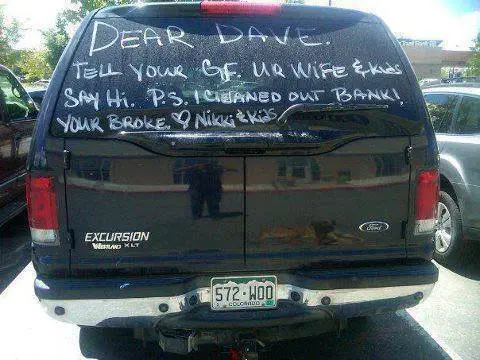 DEAR DAVE.
TELL YOUR GF. UR WIFE & KIDS
SAY HI. P.S. I CLEANED OUT BANK!
YOUR BROKE ♡ NIKKI & KIDS
EXCURSION
XLT
Ford
572-WOO
COLORADO